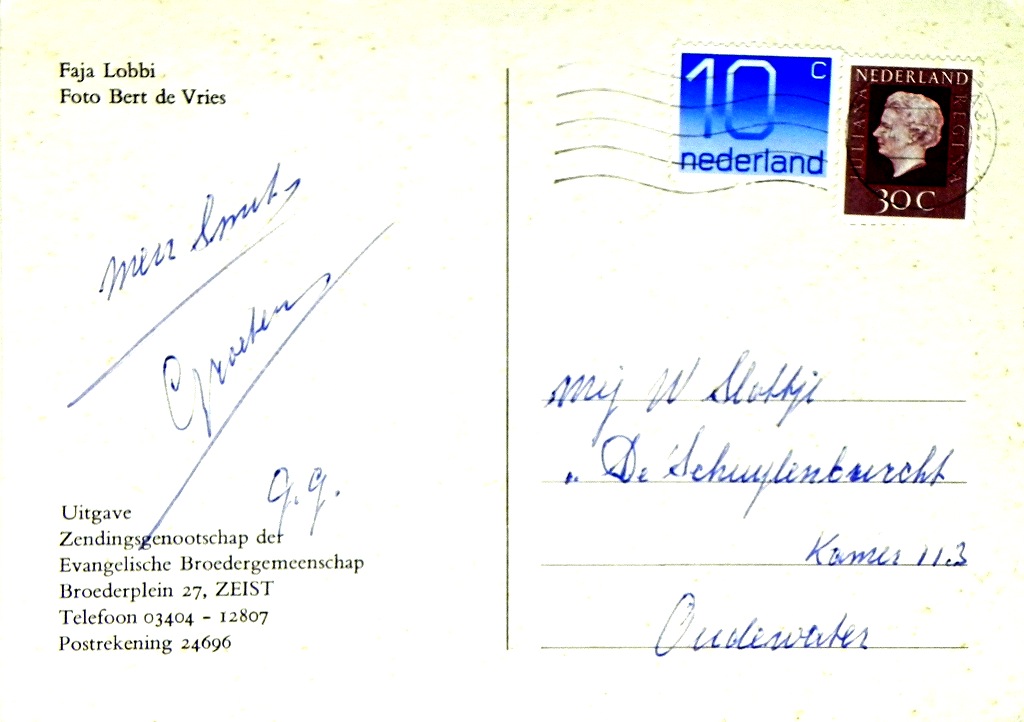 Faja Lobbi
Foto Bert de Vries
Groeten
g.g.
Uitgave
Zendingsgenootschap der
Evangelische Broedergemeenschap
Broederplein 27, ZEIST
Telefoon 03404 - 12807
Postrekening 24696
10 C
nederland
NEDERLAND
JULIANA REGINA
30 C
mej W Slottje
„ De Schuylenburcht
Kamer 113
Oudewater